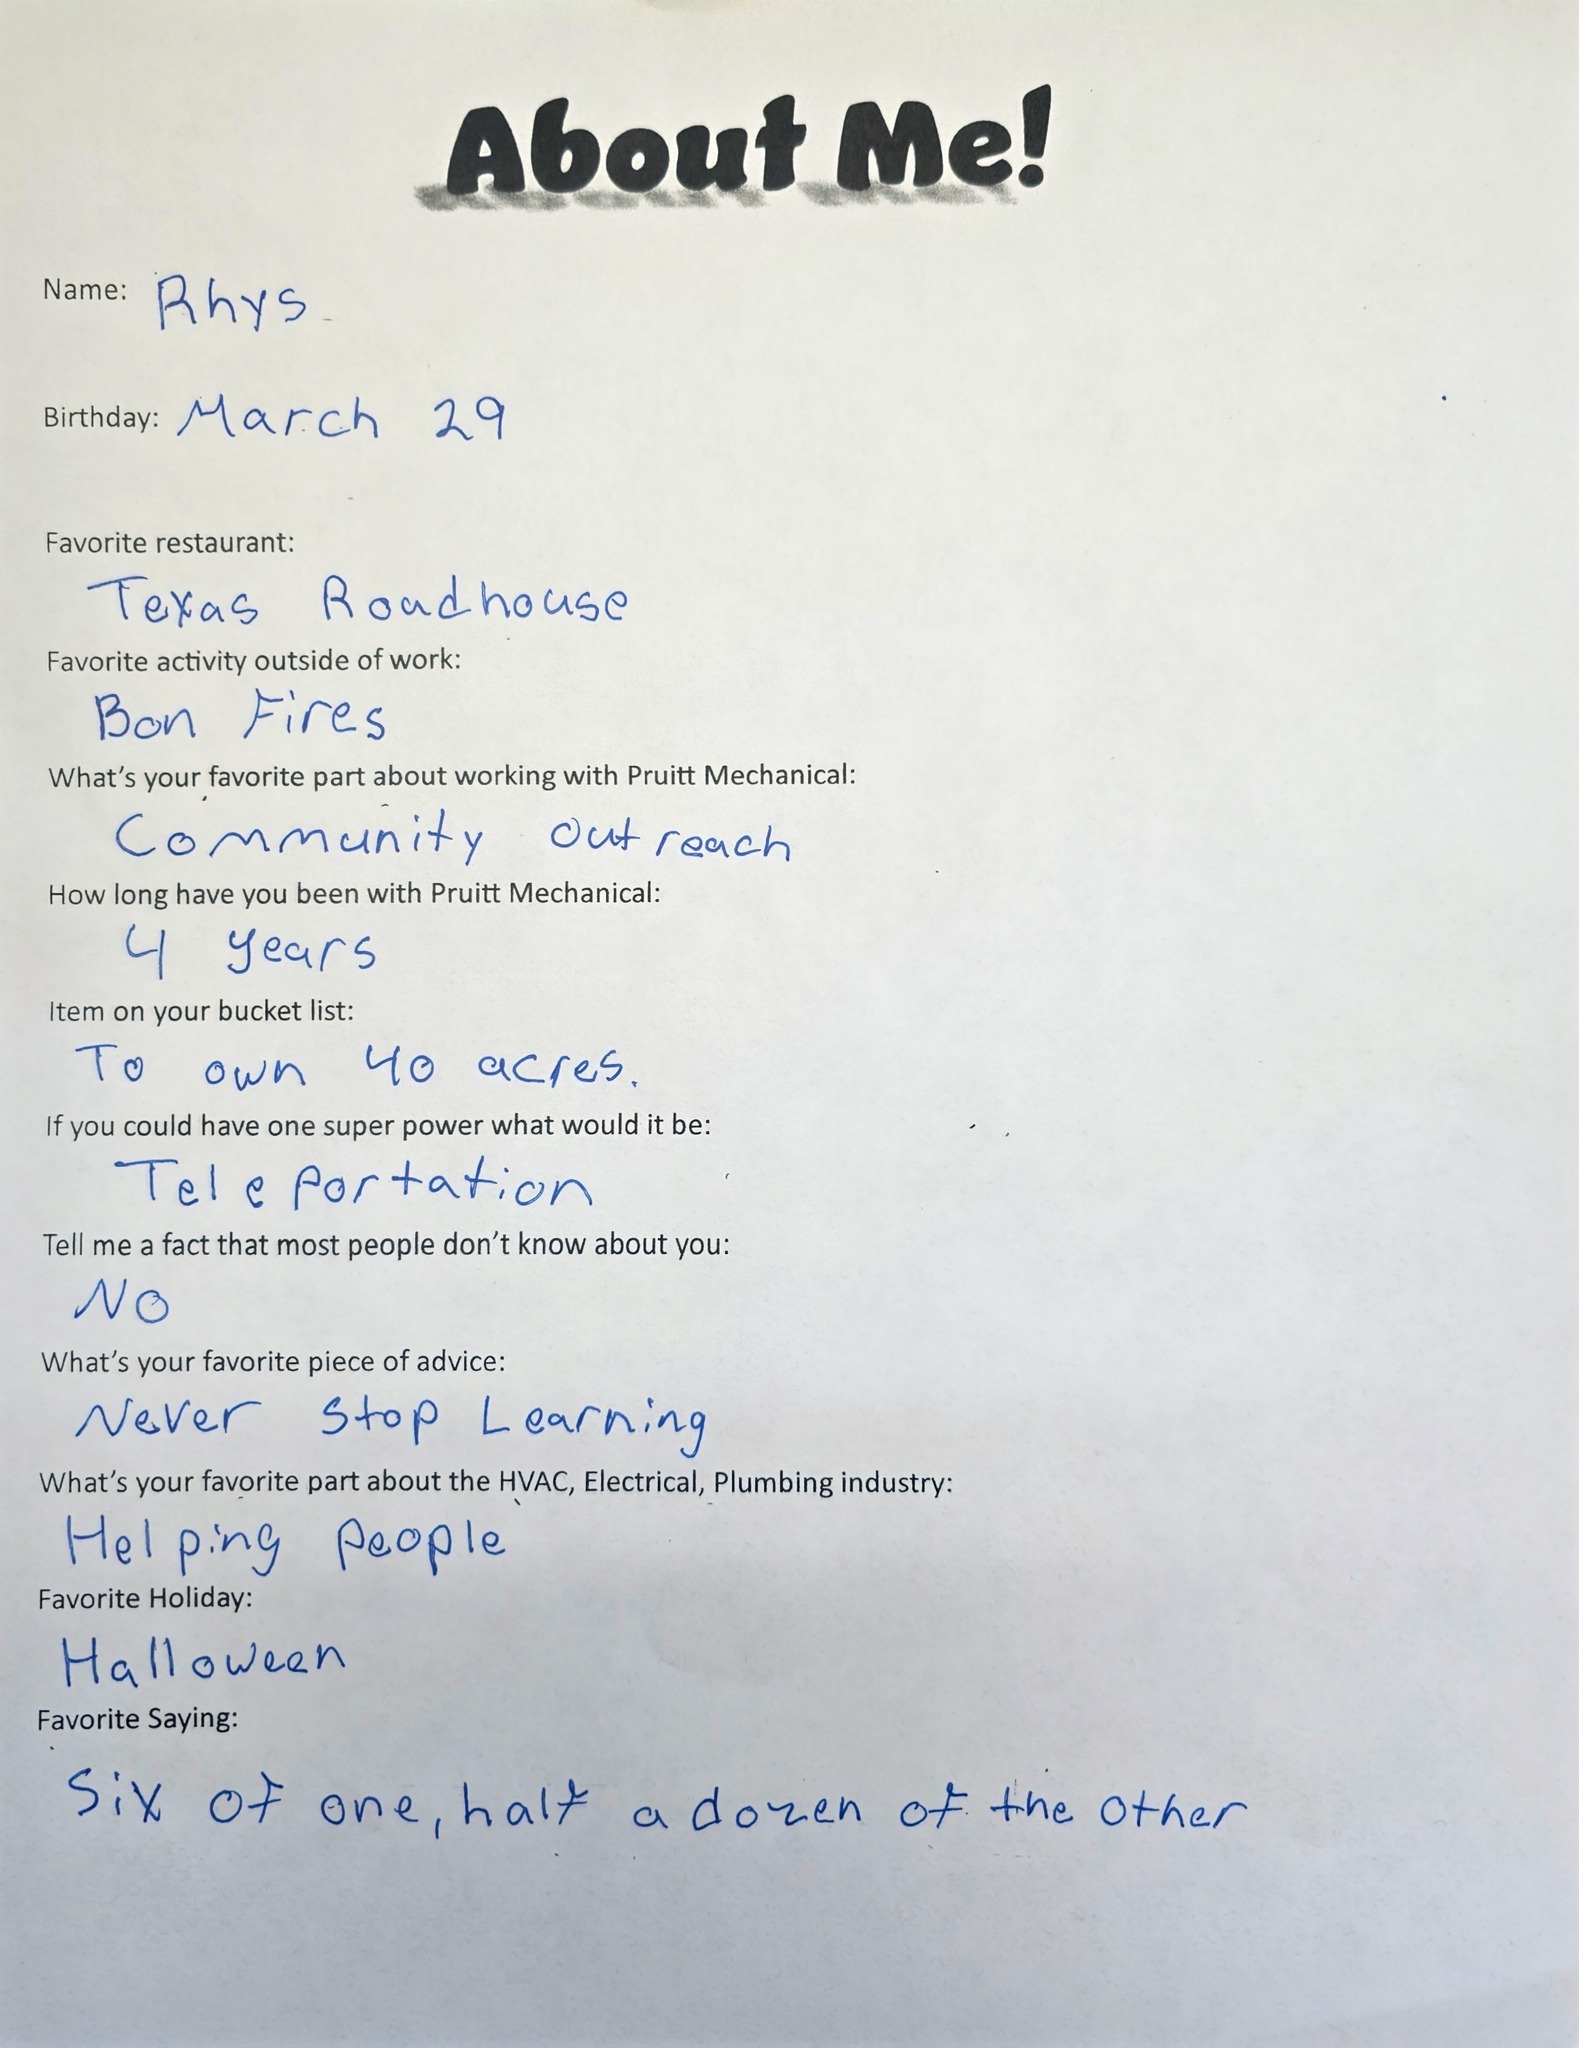 About Me!
Name: Rhys
Birthday: March 29
Favorite restaurant:
Texas Roadhouse
Favorite activity outside of work:
Bon Fires
What's your favorite part about working with Pruitt Mechanical:
Community Outreach
How long have you been with Pruitt Mechanical:
4 years
Item on your bucket list:
To own 40 acres.
If you could have one super power what would it be:
Teleportation
Tell me a fact that most people don't know about you:
No
What's your favorite piece of advice:
Never Stop Learning
What's your favorite part about the HVAC, Electrical, Plumbing industry:
Helping People
Favorite Holiday:
Halloween
Favorite Saying:
Six of one, half a dozen of the other